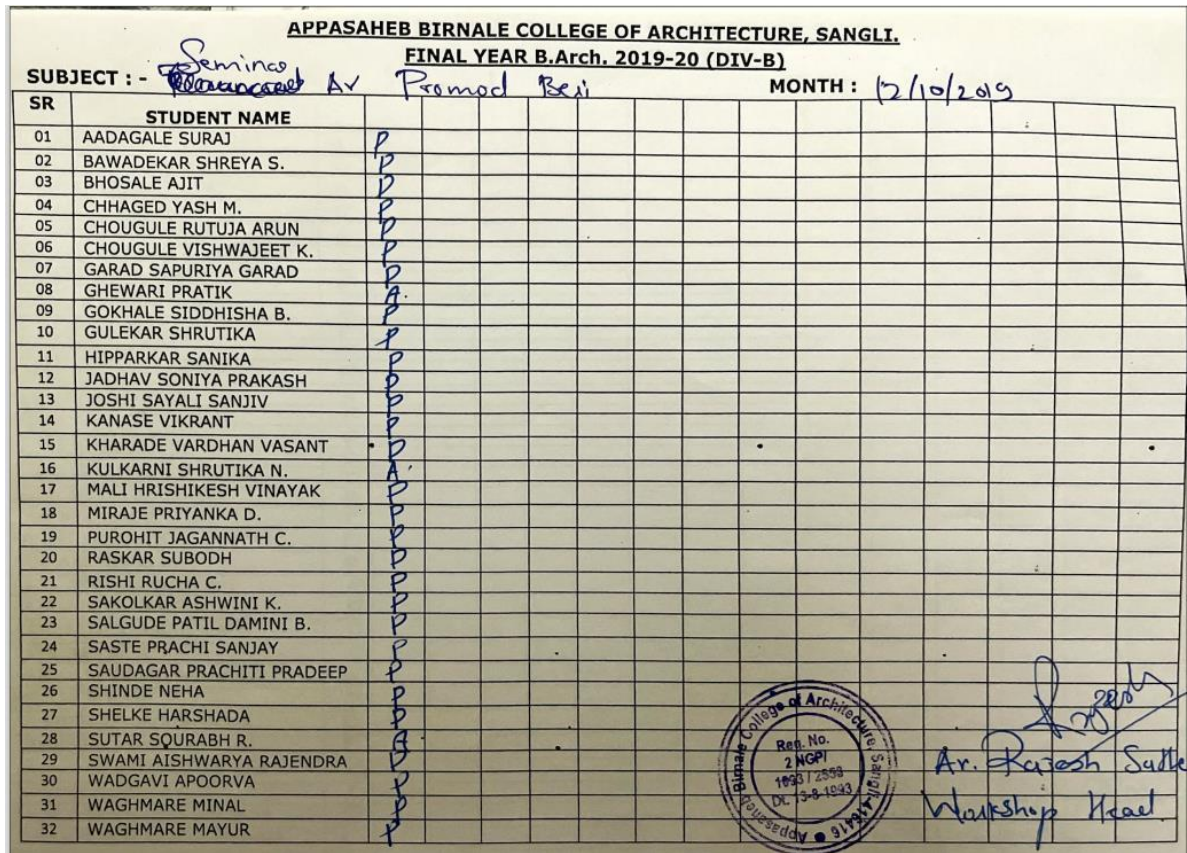 APPASAHEB BIRNALE COLLEGE OF ARCHITECTURE, SANGLI.
FINAL YEAR B.Arch. 2019-20 (DIV-B)
SUBJECT : - Seminar Ar Promod Beri MONTH : 12/10/2019
SR STUDENT NAME
01 AADAGALE SURAJ P
02 BAWADEKAR SHREYA S. P
03 BHOSALE AJIT P
04 CHHAGED YASH M. P
05 CHOUGULE RUTUJA ARUN P
06 CHOUGULE VISHWAJEET K. P
07 GARAD SAPURIYA GARAD P
08 GHEWARI PRATIK A
09 GOKHALE SIDDHISHA B. P
10 GULEKAR SHRUTIKA P
11 HIPPARKAR SANIKA P
12 JADHAV SONIYA PRAKASH P
13 JOSHI SAYALI SANJIV P
14 KANASE VIKRANT P
15 KHARADE VARDHAN VASANT P
16 KULKARNI SHRUTIKA N. A
17 MALI HRISHIKESH VINAYAK P
18 MIRAJE PRIYANKA D. P
19 PUROHIT JAGANNATH C. P
20 RASKAR SUBODH P
21 RISHI RUCHA C. P
22 SAKOLKAR ASHWINI K. P
23 SALGUDE PATIL DAMINI B. P
24 SASTE PRACHI SANJAY P
25 SAUDAGAR PRACHITI PRADEEP P
26 SHINDE NEHA P
27 SHELKE HARSHADA P
28 SUTAR SOURABH R.
29 SWAMI AISHWARYA RAJENDRA P
30 WADGAVI APOORVA P
31 WAGHMARE MINAL P
32 WAGHMARE MAYUR P
Appasaheb Birnale College of Architecture, Sangli-416416
Reg. No.
2 NGP/
1693 / 2593
Dt. 13-8-1993
Ar. Rajesh
Workshop Head